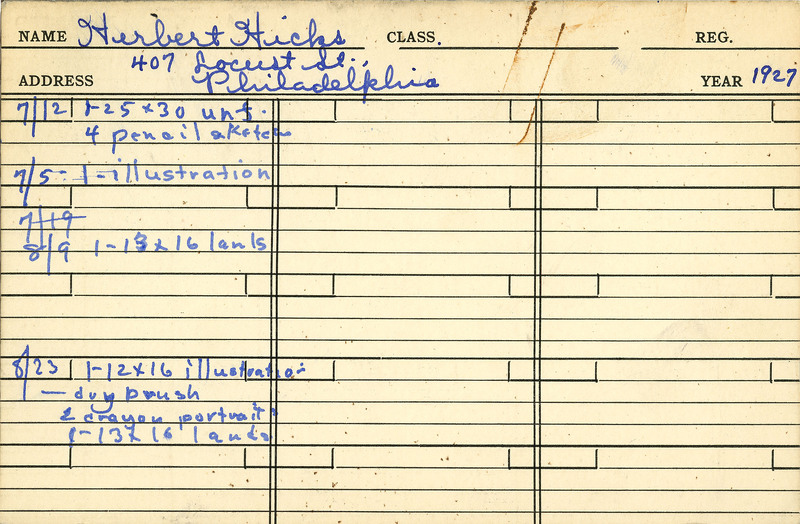 NAME Herbert Hicks CLASS. REG.
407 Locust St.,
ADDRESS Philadelphia YEAR 1927
7/12 1-25 x 30 unf.
4 pencil sketch
7/5- 1-illustration
7/19
8/9 1-13 x 16 lands
8/23 1-12 x 16 illustration
— dry brush
2 crayon portraits
1-13 x 16 lands